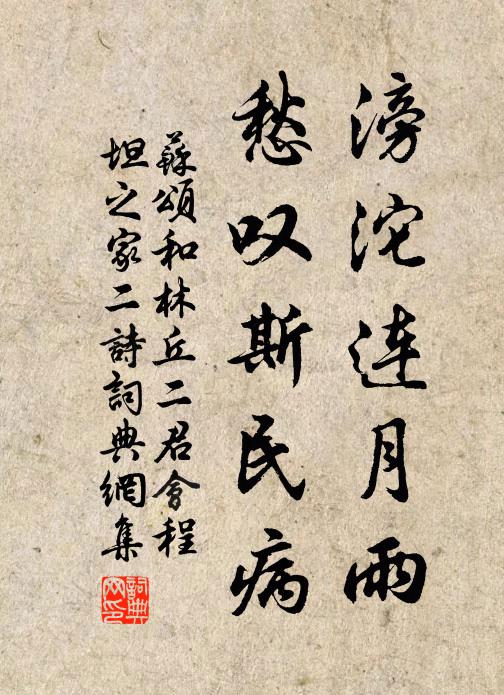 滂沱连月雨
愁叹斯民病
蘇頌和林丘二君會程
坦之家二詩詞典網集
詞典网印